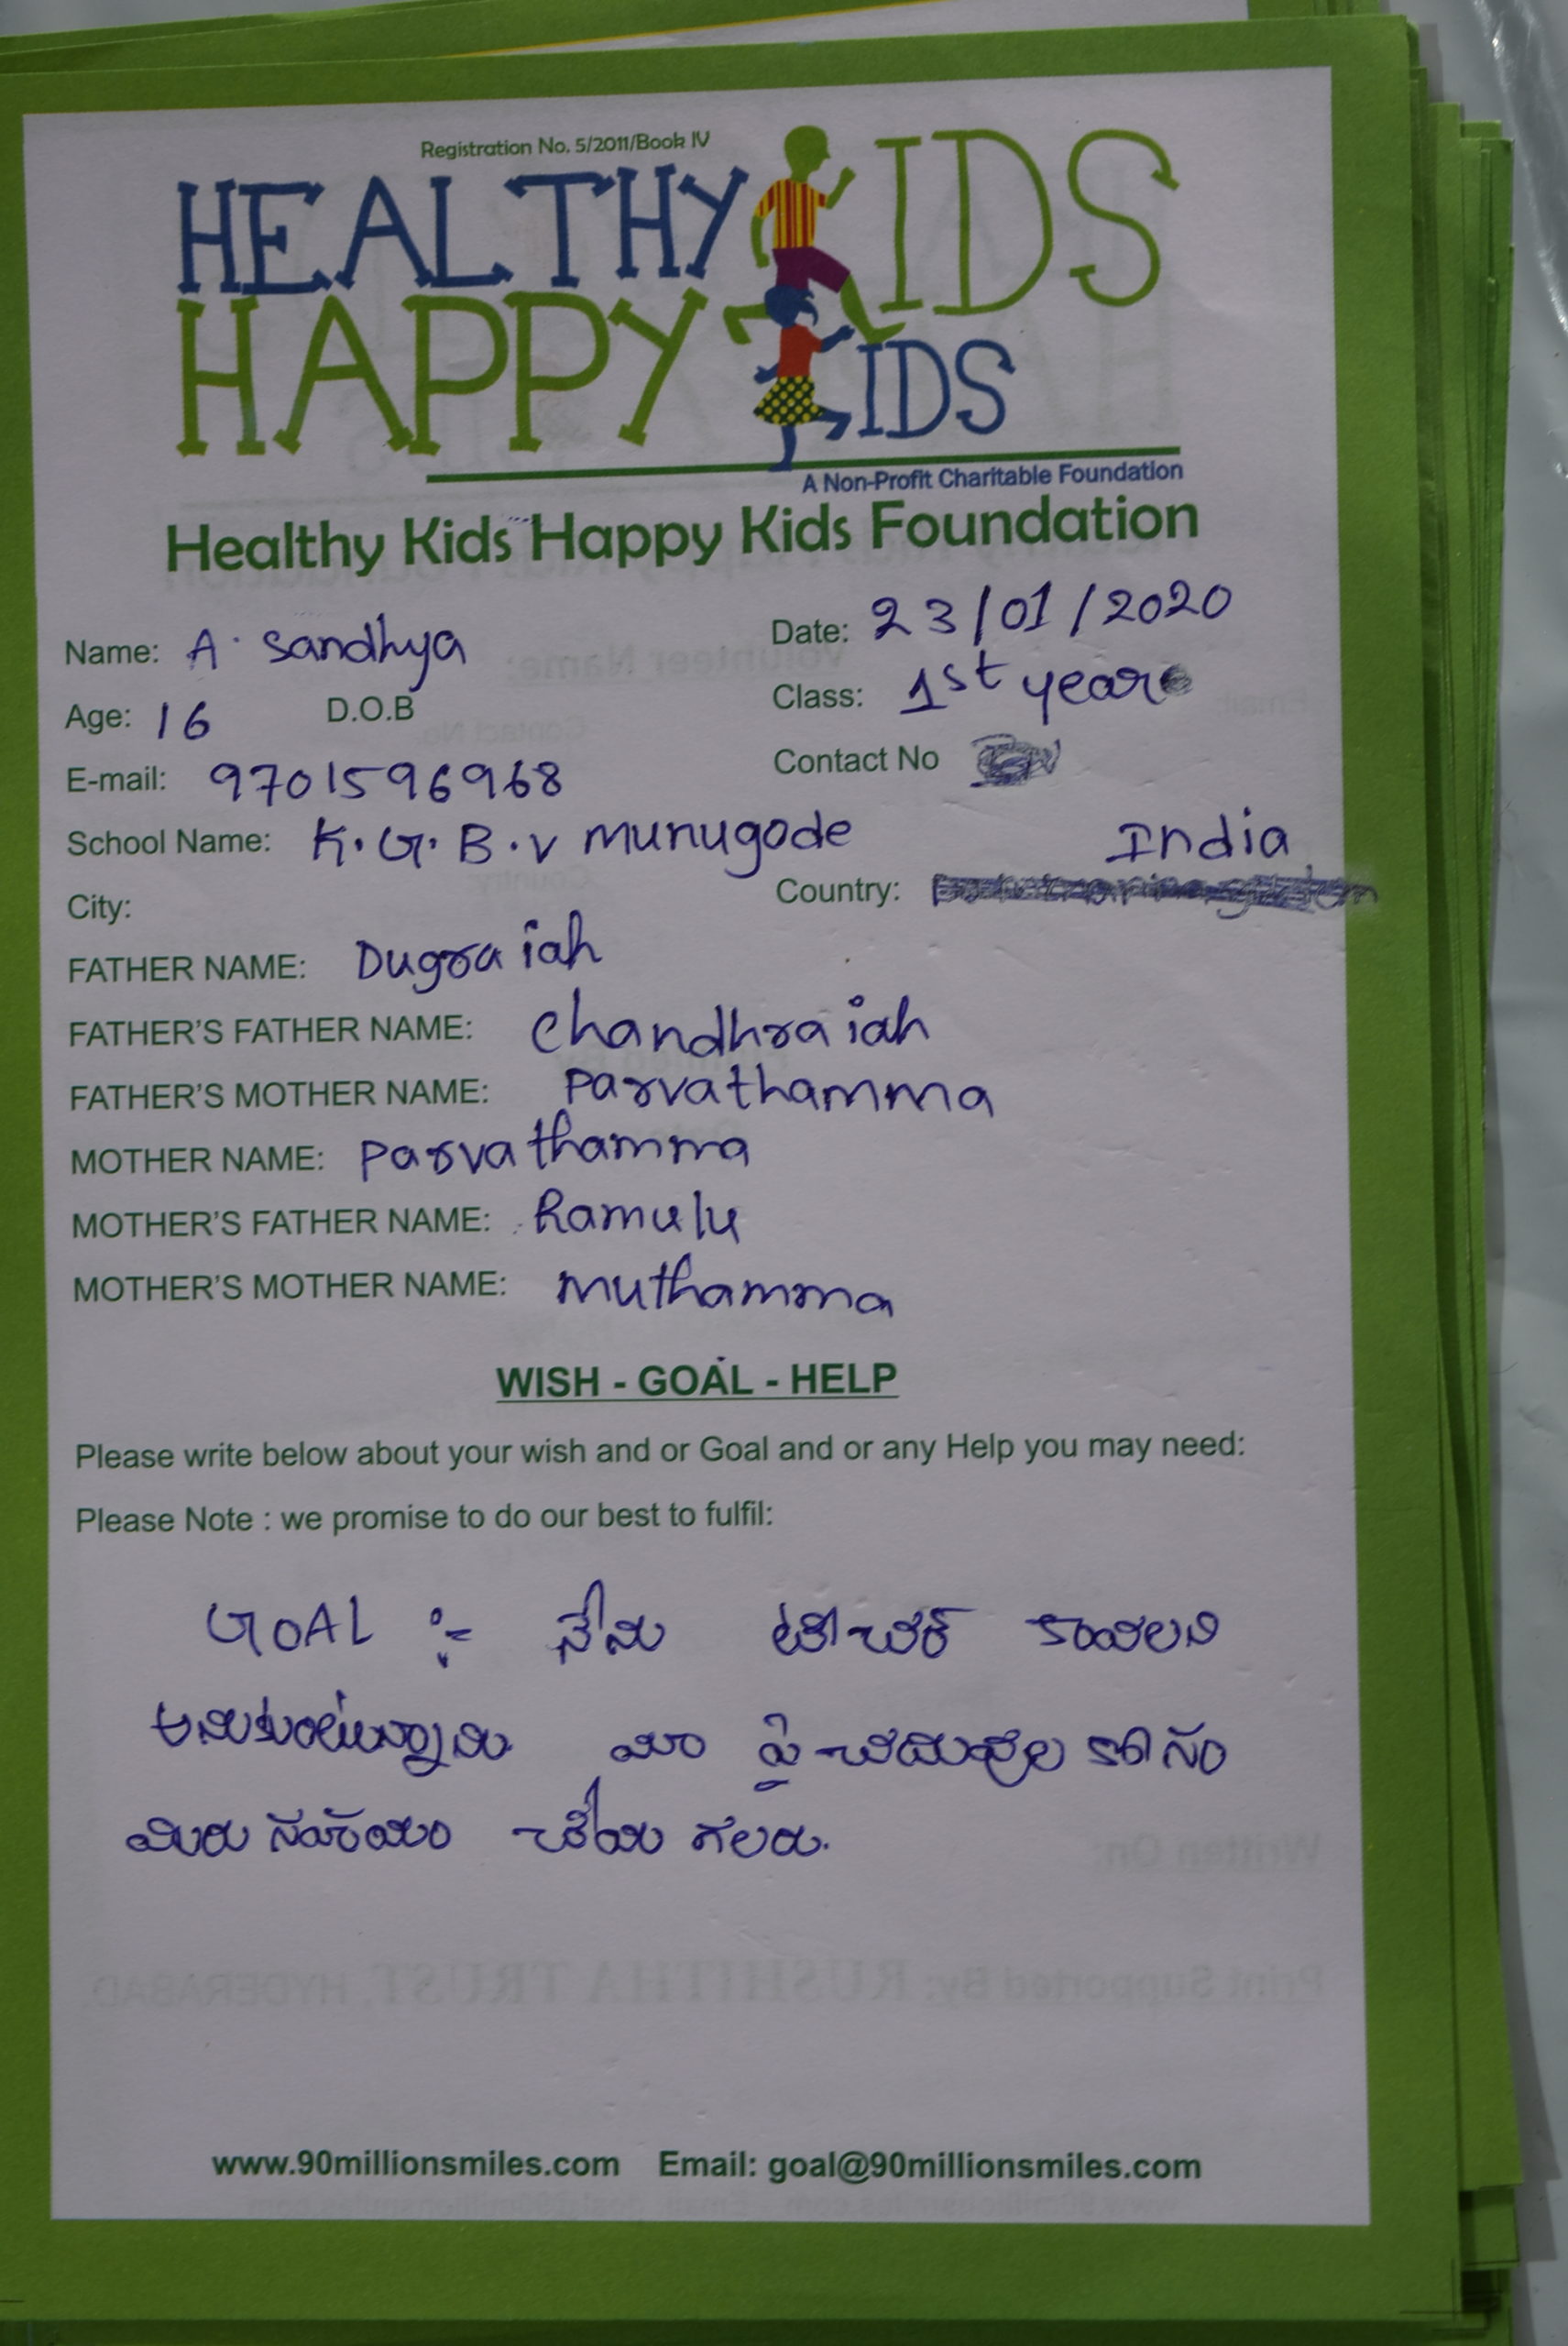 Registration No. 5/2011/Book IV
HEALTHY KIDS
HAPPY KIDS
A Non-Profit Charitable Foundation
Healthy Kids Happy Kids Foundation
Name: A. Sandhya Date: 23/01/2020
Age: 16 D.O.B Class: 1st year
E-mail: 9701596968 Contact No
School Name: K.G.B.V munugode India
City: Country:
FATHER NAME: Dugraiah
FATHER'S FATHER NAME: Chandhraiah
FATHER'S MOTHER NAME: Parvathamma
MOTHER NAME: Parvathamma
MOTHER'S FATHER NAME: Ramulu
MOTHER'S MOTHER NAME: muthamma
WISH - GOAL - HELP
Please write below about your wish and or Goal and or any Help you may need:
Please Note : we promise to do our best to fulfil:
GOAL :- నేను టీచర్ కావలని
అనుకుంటున్నాను మా పై చదువుల కోసం
మిరు సహాయం చేయ గలరు.
Written On:
Print Supported By: RUSHITHA TRUST, HYDERABAD.
www.90millionsmiles.com Email: goal@90millionsmiles.com